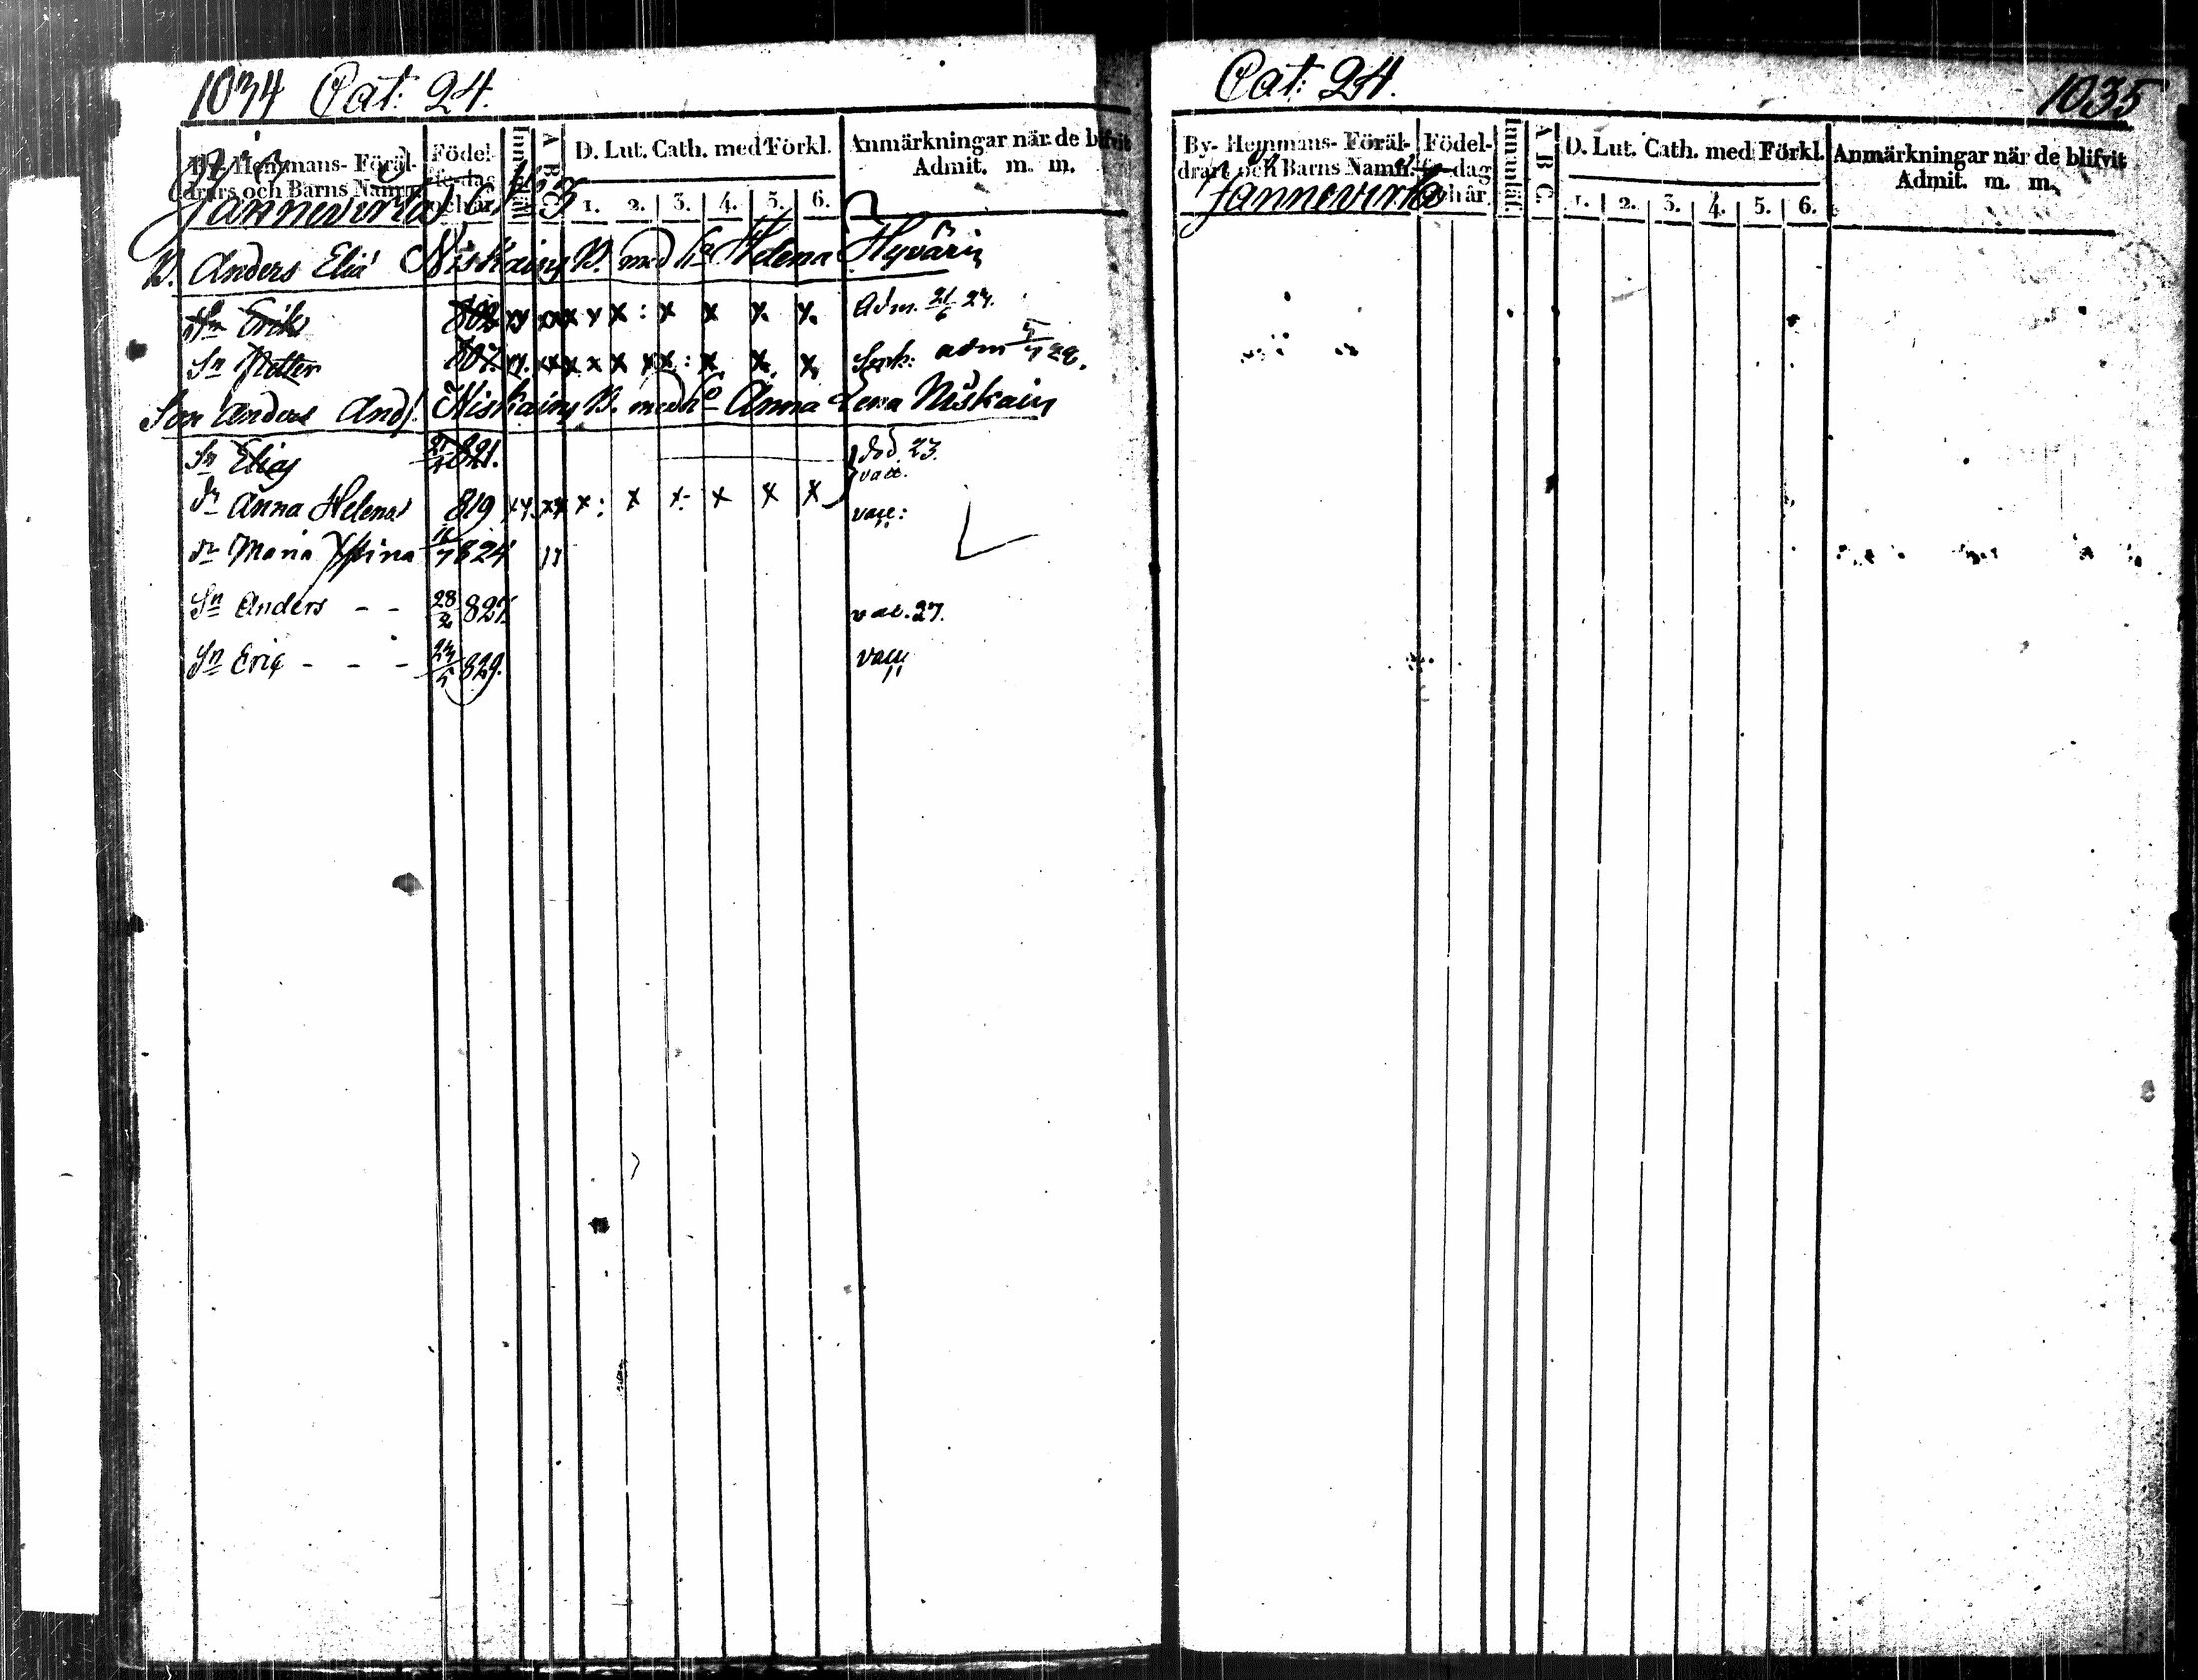 1034 Cat: 24.
By- Hemmans- Föräl-
drars och Barns Namn.
Födel-
se-dag
och år.
A B C
D. Lut. Cath. med Förkl.
1. 2. 3. 4. 5. 6.
Anmärkningar när de blifvit
Admit. m. m.
Jännevirta
B. Anders Elia Niskain B. med h. Helena Hyvärin
Sn Erik 802 xy xx x y x : x x x. x. Adm. 21/6 27.
Sn Petter 807. x x x x x : x x. x. adm 5/7 28.
Son Anders And. Niskain B. med h. Anna Lena Niskain
Sn Elias 821. död 23.
vacc.
dr Anna Helena 819 xy. xx x : x x. x x x vacc:
dr Maria Xstina 16/7 824 11
Sn Anders - - 28/2 827. vac. 27.
Sn Eric - - - 829. vacc
Cat: 24. 1035
By- Hemmans- Föräl-
drars och Barns Namn.
Födel-
se-dag
och år.
Innantill.
A B C.
D. Lut. Cath. med Förkl.
1. 2. 3. 4. 5. 6.
Anmärkningar när de blifvit
Admit. m. m.
Jännevirta